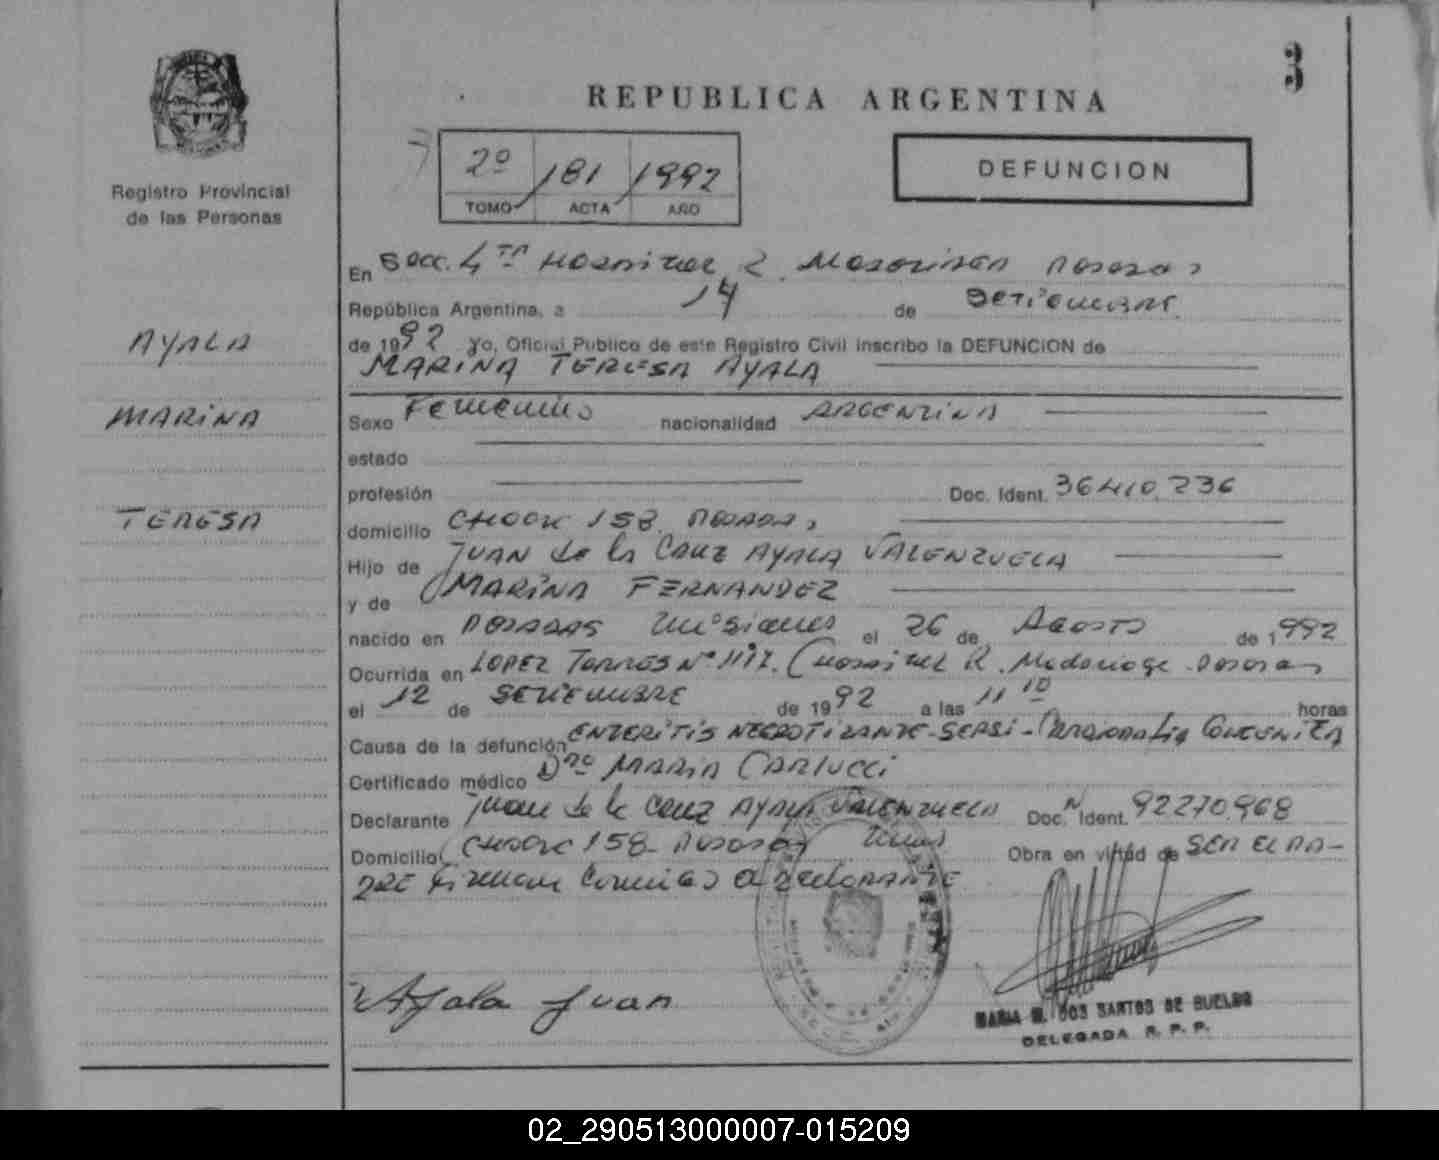 3
REPUBLICA ARGENTINA
2º 181 1992
TOMO ACTA AÑO
DEFUNCION
Registro Provincial
de las Personas
AYALA
MARINA
TERESA
En Secc. 4ta Hospital R. Madariaga Posadas
República Argentina, a 14 de Setiembre
de 1992 yo, Oficial Publico de este Registro Civil inscribo la DEFUNCION de
MARINA TERESA AYALA
Sexo Femenino nacionalidad ARGENTINA
estado
profesión Doc. Ident. 36410.236
domicilio CHOCK 158 POSADAS,
Hijo de JUAN de la CRUZ AYALA VALENZUELA
y de MARINA FERNANDEZ
nacido en POSADAS Misiones el 26 de Agosto de 1992
Ocurrida en LOPEZ TORRES Nº 1177. (Hospital R. Madariaga Posadas
el 12 de SETIEMBRE de 1992 a las 11 10 horas
Causa de la defunción ENTERITIS NECROTIZANTE-SEPSI-
Certificado médico Dra MARIA CARLUCCI
Declarante Juan de la Cruz AYALA VALENZUELA Doc. Ident. 92270.968
Domicilio 158 Posadas Mnes Obra en virtud de SER EL PA-
DRE DECLARANTE
Ayala Juan
MARIA M. DOS SANTOS DE BUELDO
DELEGADA R. P. P.
02_290513000007-015209